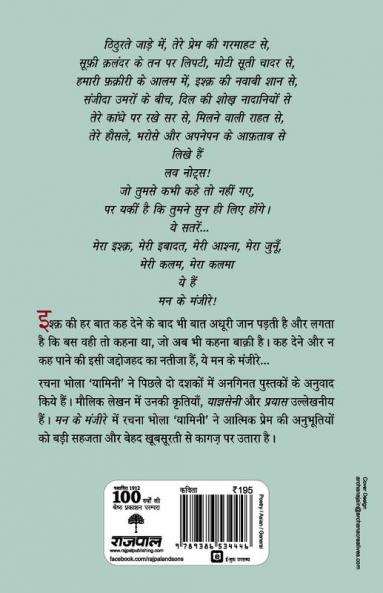 ठिठुरते जाड़े में, तेरे प्रेम की गरमाहट से,
सूफ़ी क़लंदर के तन पर लिपटी, मोटी सूती चादर से,
हमारी फ़क़ीरी के आलम में, इश्क़ की नवाबी शान से,
संजीदा उमरों के बीच, दिल की शोख़ नादानियों से
तेरे काँधे पर रखे सर से, मिलने वाली राहत से,
तेरे हौसले, भरोसे और अपनेपन के आफ़ताब से
लिखे हैं
लव नोट्स!
जो तुमसे कभी कहे तो नहीं गए,
पर यकीं है कि तुमने सुन ही लिए होंगे।
ये सतरें...
मेरा इश्क़, मेरी इबादत, मेरी आश्ना, मेरा जुनूँ,
मेरी कलम, मेरा कलमा
ये हैं
मन के मंजीरे!
इश्क़ की हर बात कह देने के बाद भी बात अधूरी जान पड़ती है और लगता
है कि बस वही तो कहना था, जो अब भी कहना बाक़ी है। कह देने और न
कह पाने की इसी जद्दोजहद का नतीजा हैं, ये मन के मंजीरे...
रचना भोला 'यामिनी' ने पिछले दो दशकों में अनगिनत पुस्तकों के अनुवाद
किये हैं। मौलिक लेखन में उनकी कृतियाँ, याज्ञसेनी और प्रयास उल्लेखनीय
हैं। मन के मंजीरे में रचना भोला 'यामिनी' ने आत्मिक प्रेम की अनुभूतियों
को बड़ी सहजता और बेहद खूबसूरती से कागज़ पर उतारा है।
स्थापित 1912
100 वर्षों की
श्रेष्ठ प्रकाशन परम्परा
राजपाल
www.rajpalpublishing.com
facebook.com/rajpalandsons
कविता
₹195
9 789386 534446
ई-बुक उपलब्ध
Poetry / Asian / General
Cover Design
archanajain@archanacreatives.com